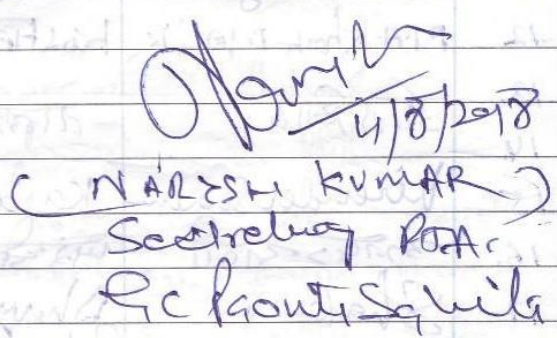 4/8/2018
( NARESH KUMAR )
Secretary PTA.
GC Paonta Sahib